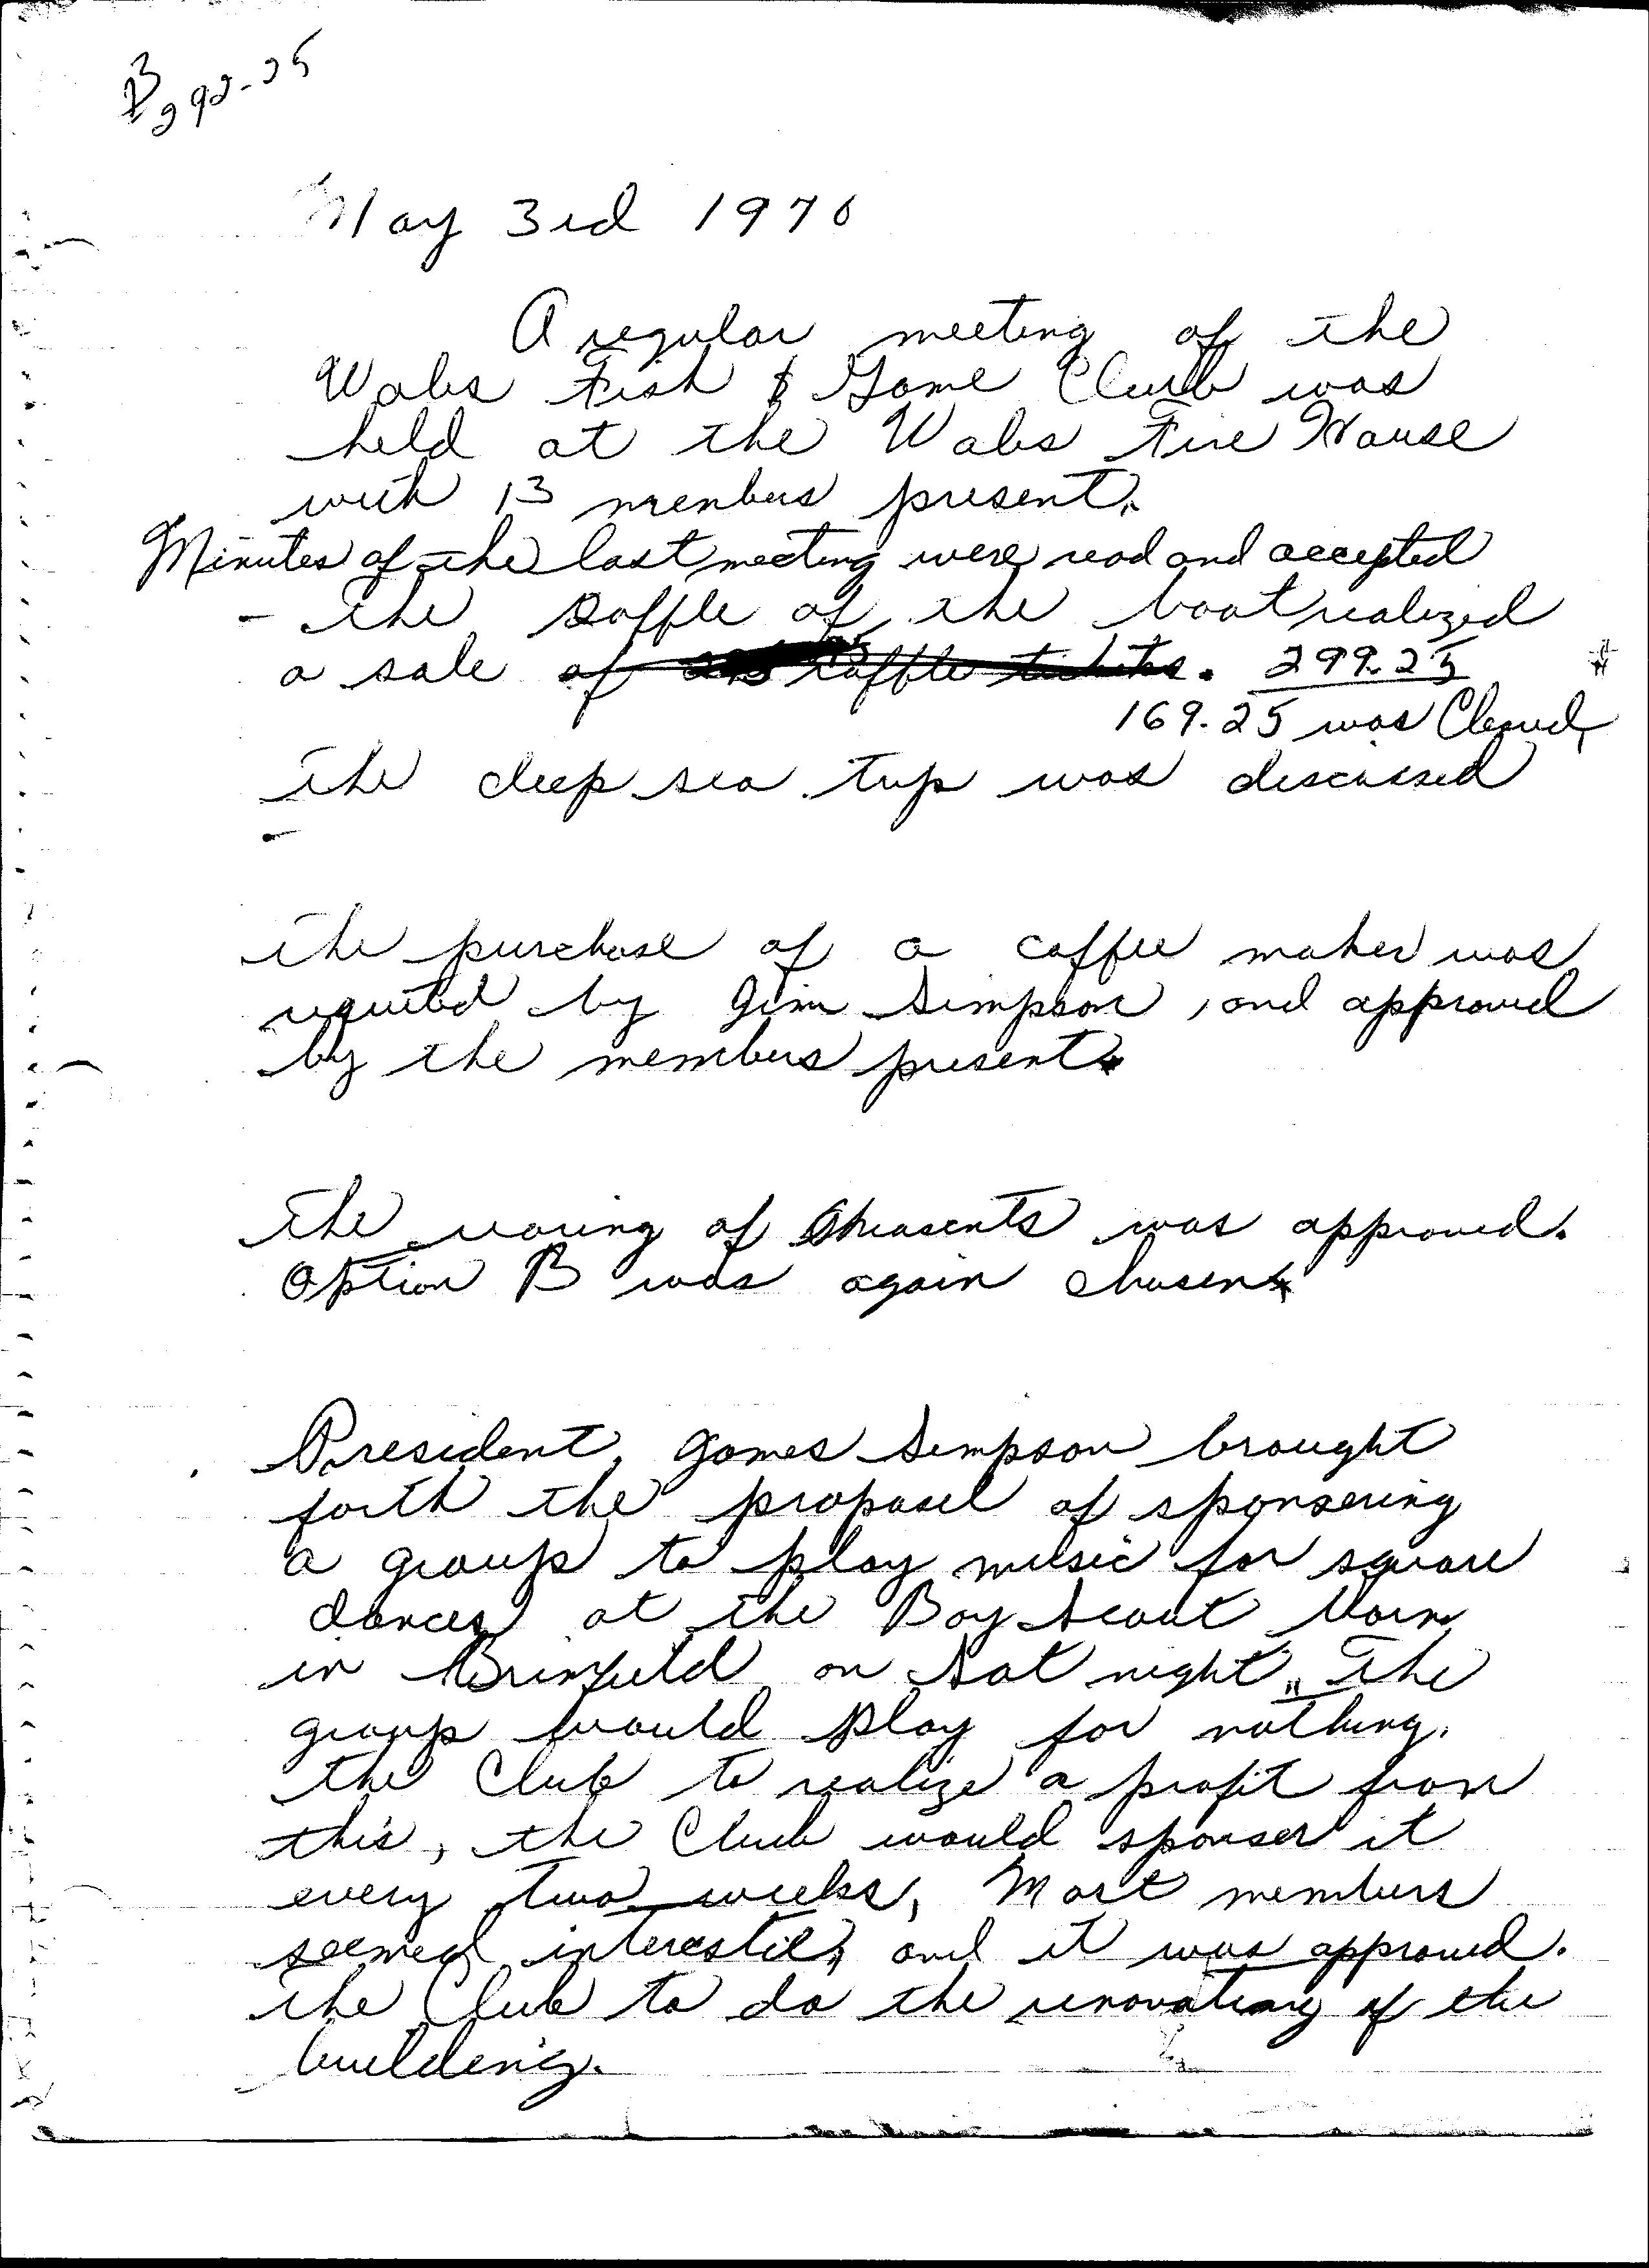 May 3rd 1970
A regular meeting of the
Wabs Fish & Game Club was
held at the Wabs Fire House
with 13 menbers present.
Minutes of the last meeting were read and accepted
- The Raffle of the boat realized
a sale of raffle tickets. 299.25
169.25 was Cleared,
the deep sea trip was discussed
the purchase of a coffee maker was
by Jim Simpson, and approved
by the members present.
the raring of Pheasents was approved.
Option B was again chosen.
President, James Simpson brought
forth the proposel of sponsering
a group to play music for square
dances at the Boy Scout barn
in Brimfield on Sat night. The
group would play for nothing.
the Club to realize a profit from
this, the Club would sponser it
every two weeks, Most members
seemed interested, and it was approved.
the Club to do the renovating of the
building.